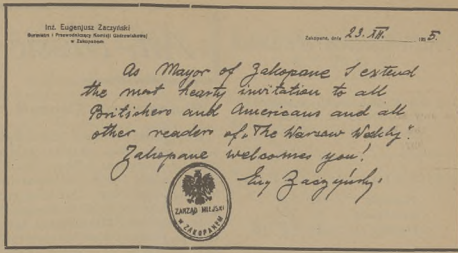 Inż. Eugenjusz Zaczyński
Burmistrz i Przewodniczący Komisji Uzdrowiskowej
w Zakopanem
Zakopane, dnia 23. XII. 1935.
As Mayor of Zakopane I extend
the most hearty invitation to all
Britishers and Americans and all
other readers of „The Warsaw Weekly".
Zakopane welcomes you!
Eug Zaczyński.
ZARZĄD MIEJSKI
w ZAKOPANEM